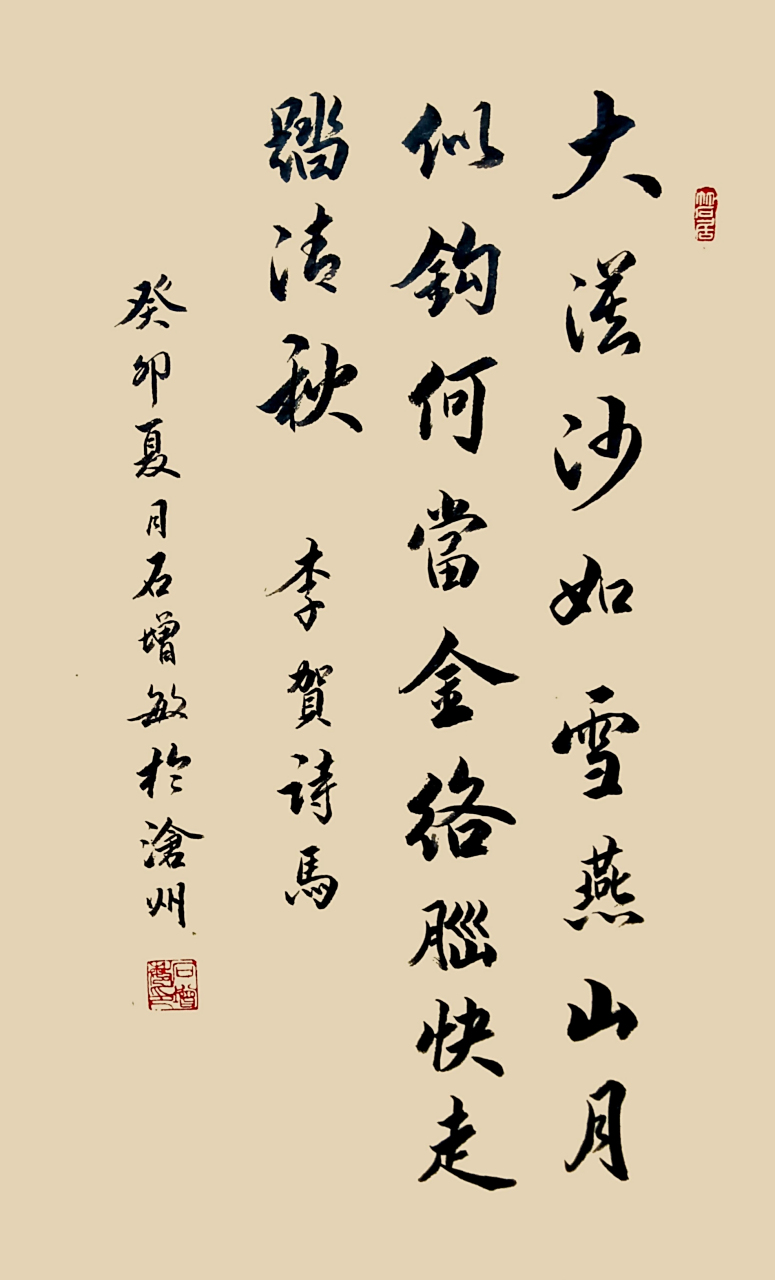 大漠沙如雪燕山月
似鈎何當金絡腦快走
蹈清秋 李賀詩馬
癸卯夏月石增敏於滄州